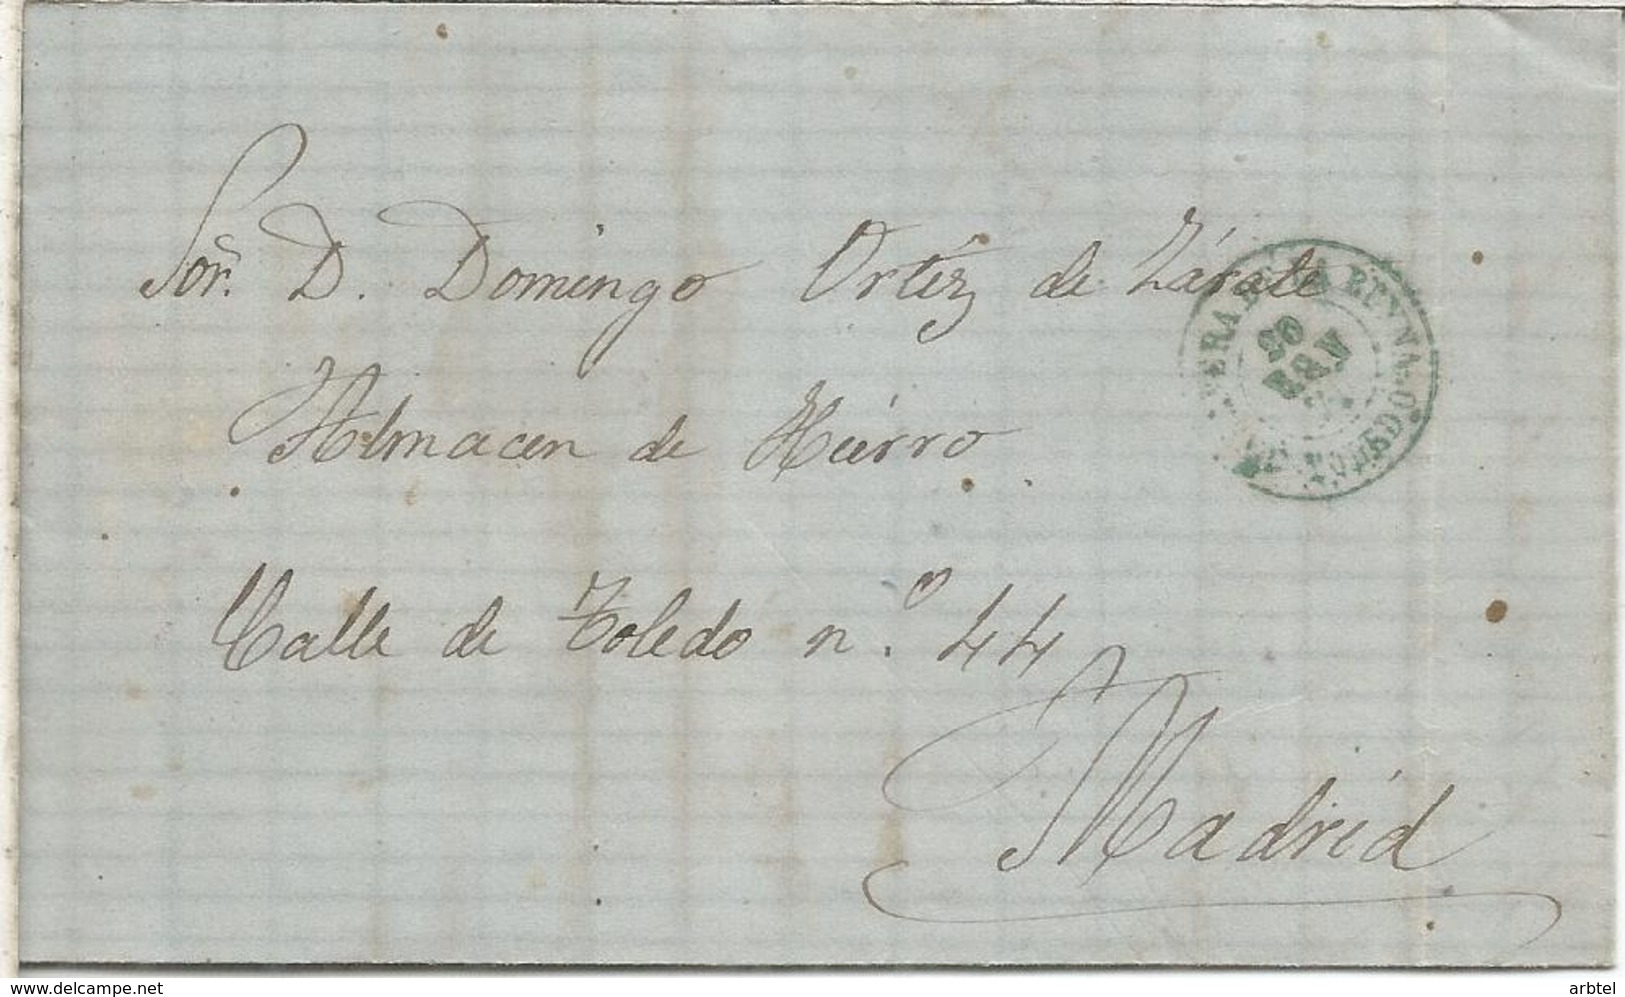 Sor. D. Domingo Ortiz de Zárate
Almacen de Hierro
Calle de Toledo n.º 44
Madrid
TALAVERA DE LA REYNA.
26
ENE
TOLEDO
delcampe.net
arbtel